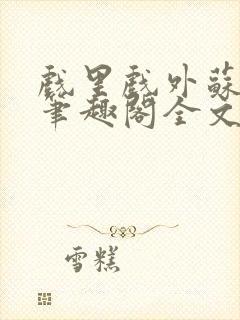 戲里戲外蘇
筆趣閣全文
雪糕